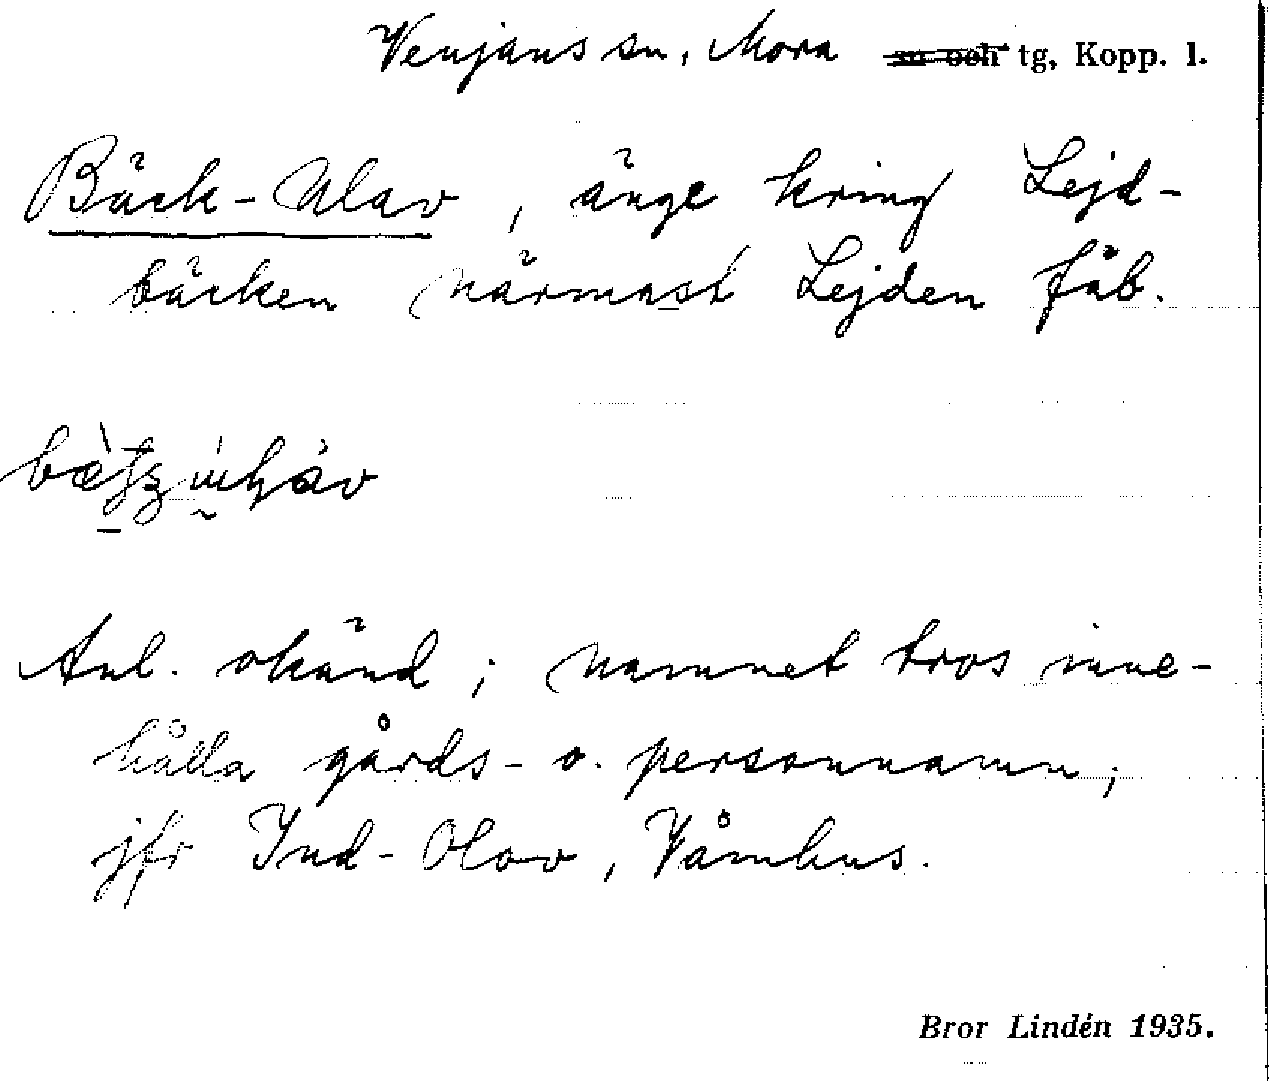 Venjans sn, Mora sn och tg, Kopp. l.
Bäck-Ulav, änge kring Lejd-
bäcken närmast Lejden fäb.
Anl. okänd; namnet tros inne-
hålla gårds- o. personnamn;
jfr Ind-Olov, Våmhus.
Bror Lindén 1935.